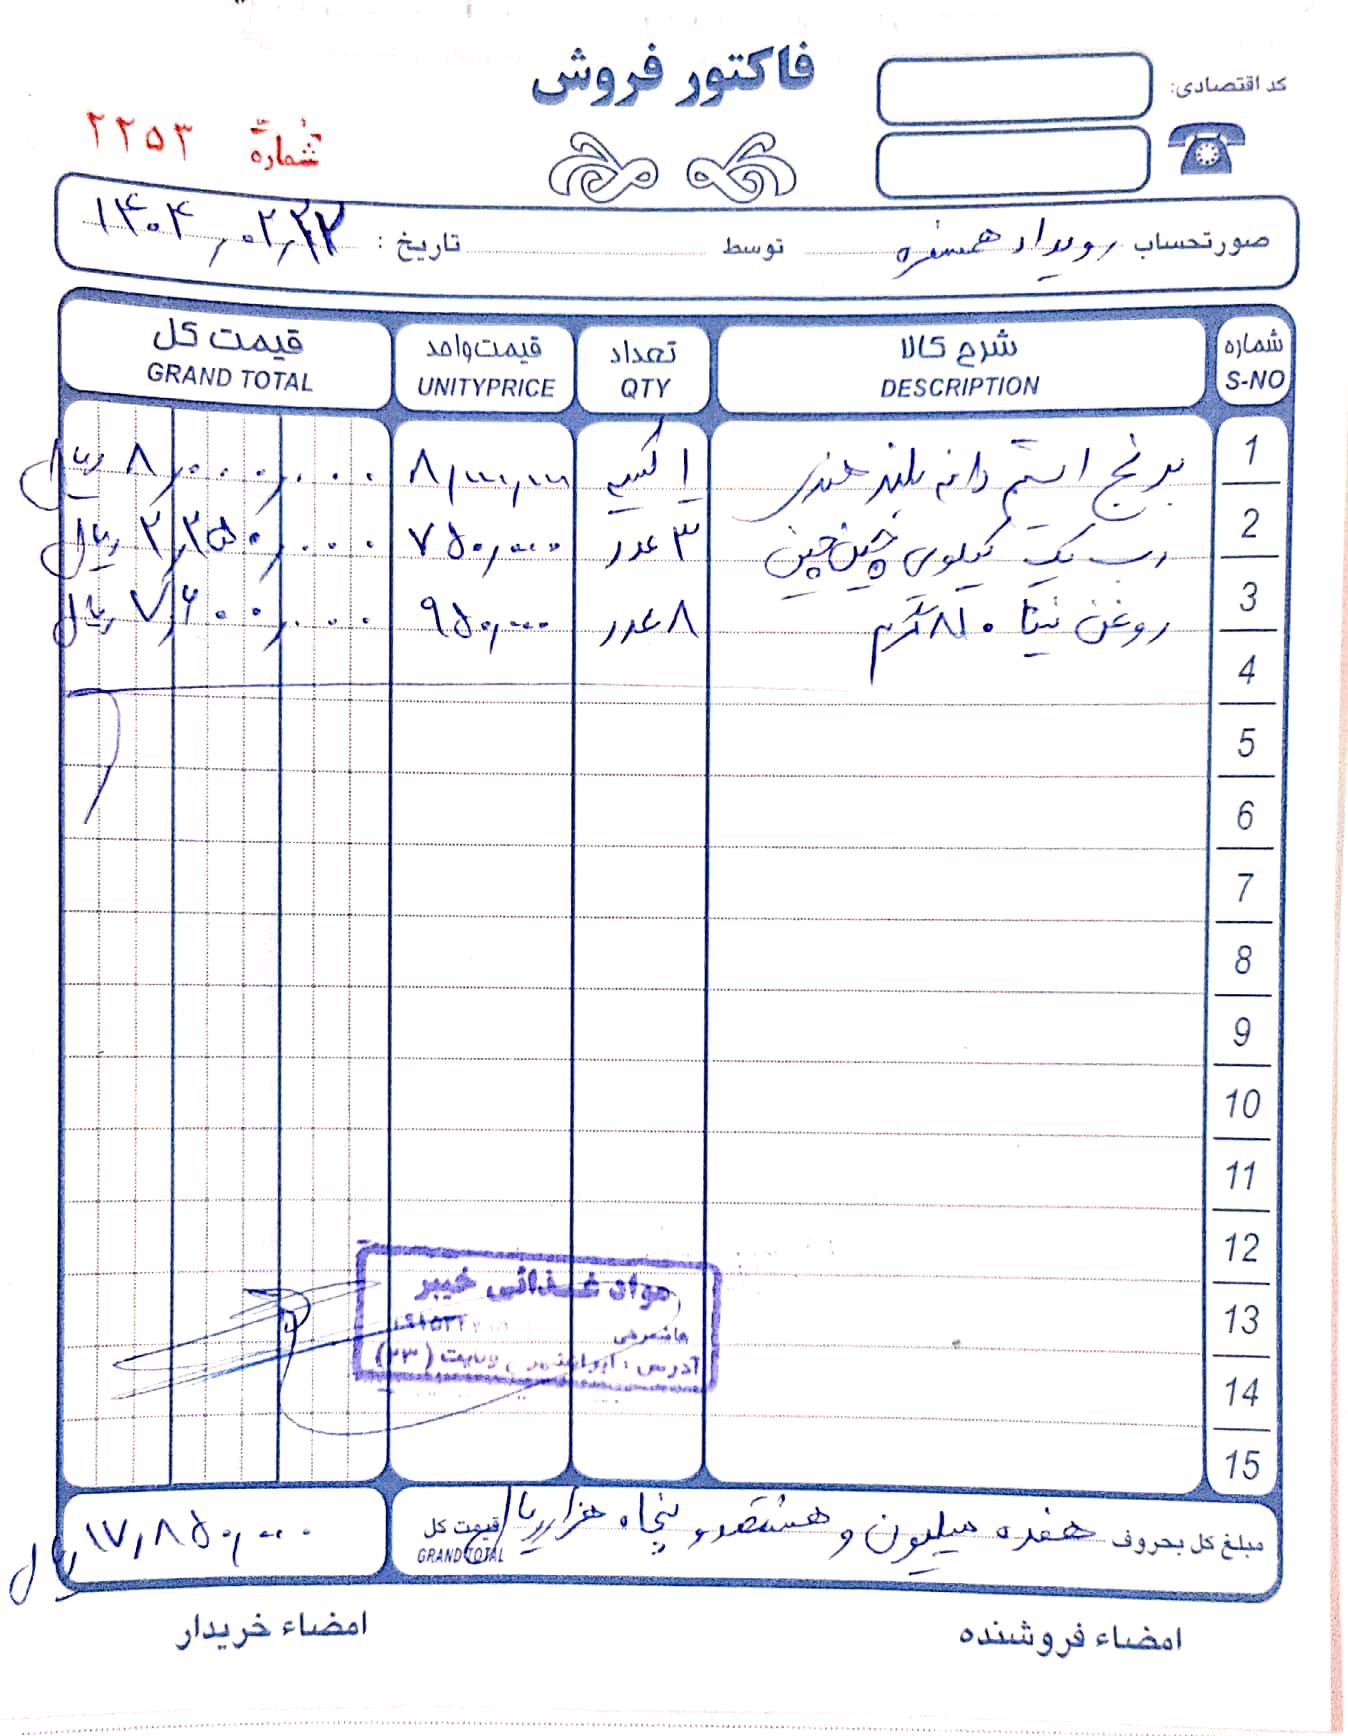 فاکتور فروش
کد اقتصادی:
شماره ۲۲۵۳
صورتحساب رویداد همسفره توسط تاریخ : ۱۴۰۴,۰۲,۲۲
شماره S-NO شرح کالا DESCRIPTION تعداد QTY قیمت واحد UNITYPRICE قیمت کل GRAND TOTAL
1 برنج استیم دانه بلند هندی ۱ کیسه ۸,۰۰۰,۰۰۰ ۸,۰۰۰,۰۰۰ ریال
2 رب یک کیلوی چین چین ۳ عدد ۷۵۰,۰۰۰ ۲,۲۵۰,۰۰۰ ریال
3 روغن نینا ۸۱۰ گرم ۸ عدد ۹۵۰,۰۰۰ ۷,۶۰۰,۰۰۰ ریال
4
5
6
7
8
9
10
11
12
13
14
15
مواد غذائی خیبر
هاشمرهی
آدرس : (۲۳)
مبلغ کل بحروف هفده میلیون و هشتصد و پنجاه هزار ریال قیمت کل GRAND TOTAL ۱۷,۸۵۰,۰۰۰ ریال
امضاء فروشنده امضاء خریدار